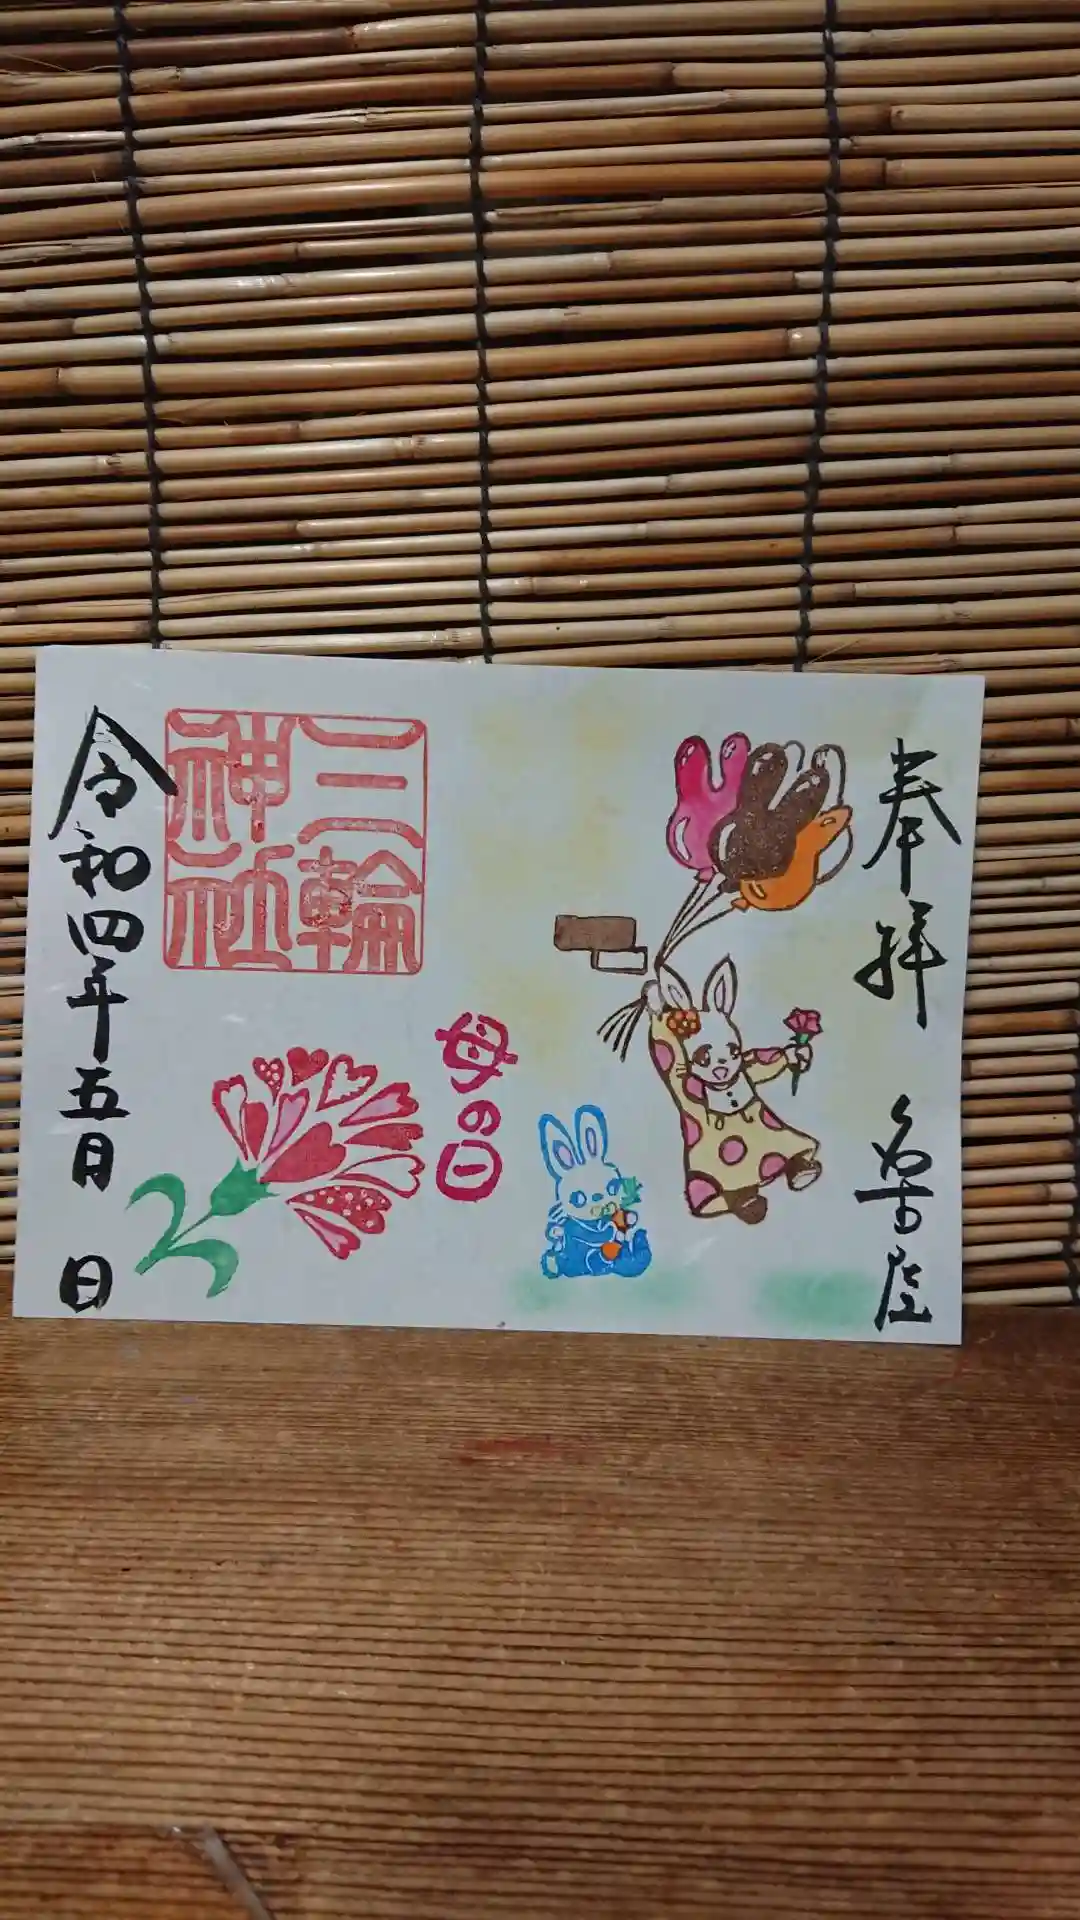 奉拝 名古屋
母の日
三輪
神社
令和四年五月 日